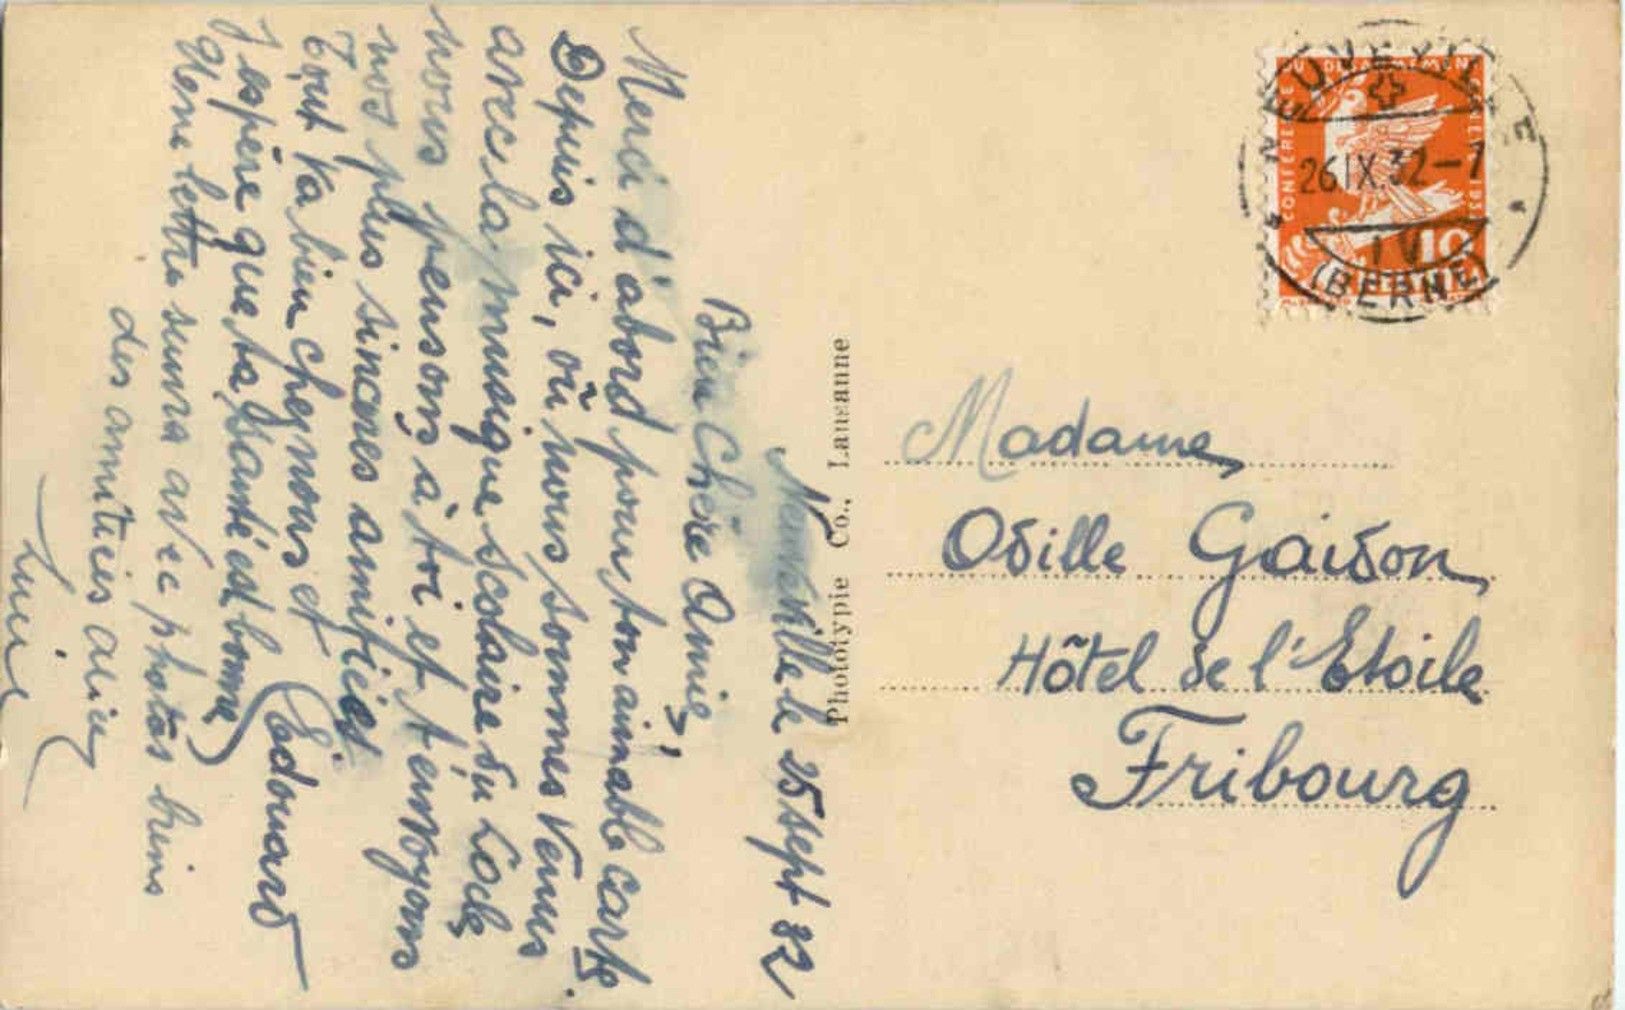 Neuveville le 25 sept 32
Bien Chère Amie,
Merci d'abord pour ton aimable carte.
Depuis ici, où nous sommes venus
avec la musique scolaire du Locle
nous pensons à toi et t'envoyons
nos plus sincères amitiés.
Tout va bien chez nous et
j'espère que ta santé est bonne
Edouard
lettre suivra avec photos
des amitiés
Phototypie Co., Lausanne
NEUVEVILLE
26.IX.32-7
IV
(BERNE)
CONFERENCE DU DESARMEMENT
10
Madame
Odille Gaidon
Hôtel de l'Etoile
Fribourg